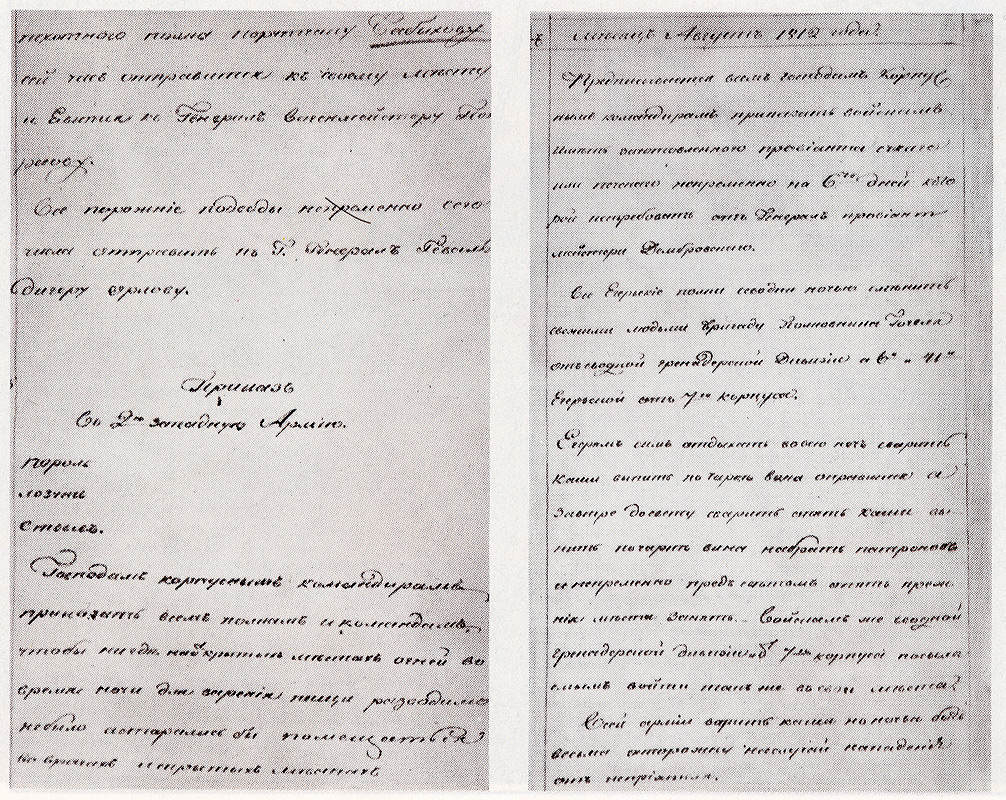 пехотного полка порутчику Бабикову
ей часъ отправится къ своему мѣсту
и Евится къ Генералъ Вагенмейстеру

Все порожніе подводы непременно сего
числа отправить къ Г. Генералъ Гевальдигеру Орлову.
Приказъ
Во 2ю западную Армію.
пороль
лозунъ
отзывъ.
Господамъ корпуснымъ командирамъ
приказать всемъ полкамъ и командамъ,
чтобы нигдѣ на открытыхъ мѣстахъ огней во
время ночи для варенія пищи разводимо
небыло а старались бы помещать
во врагахъ и скрытыхъ мѣстахъ
Месяцъ Августъ 1812 года.
Предписывается всемъ господамъ Корпуснымъ командирамъ приказать войскамъ
иметь заготовленного провіанта
или печеного непременно на 6ть дней кото
рой истребовать отъ Генералъ провіант
мейстера Домбровского.
Все Егерскіе полки сегодни ночью сменить
своими людьми бригаду Полковника Гогеля
отъ сводной гренадерской Дивизіи а 6й и 41й
Егерской отъ 7го корпуса.
Егерямъ симъ отдыхать во всю ночь сварить
каши выпить по чарке вина оправится а
завтре до свету сварить опять каши вы
пить по чарке вина набрать патроновъ
и непременно предъ светомъ опять преж
ніе места занять. Войскамъ же сводной
гренадерской дивизіи и 7го корпуса посыла
емымъ войти также во свои места.
Всей арміи варить каши но ночью быть
весьма осторожну на случай нападенія
отъ непріятеля.